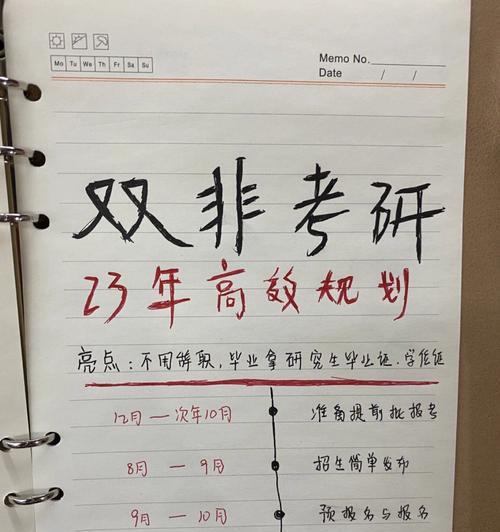 Mo Tu We Th Fr Sa Su
Memo No.
Date / /
双非考研
23年高效规划
亮点：不用辞职，毕业拿研究生毕业证、学位证
12月 — 次年10月 准备提前批报考
8月 — 9月 招生简单发布
9月 — 10月 预报名与报名